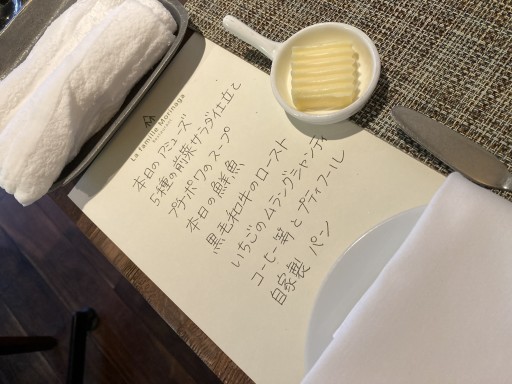 La famille Morinaga
本日のアミューズ
5種の前菜サラダ仕立て
プチポワのスープ
本日の鮮魚
黒毛和牛のロースト
いちごのムラングシャンティ
コーヒー等とプティフール
自家製 パン